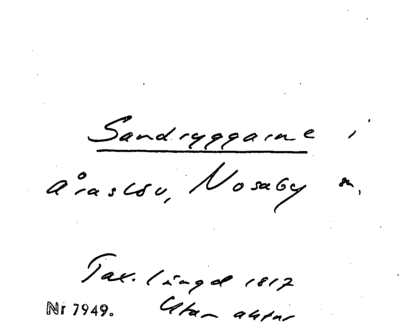 Sandryggarne i
Åraslöv, Nosaby sn.
Tax. längd 1817
Nr 7949. Utan aktnr